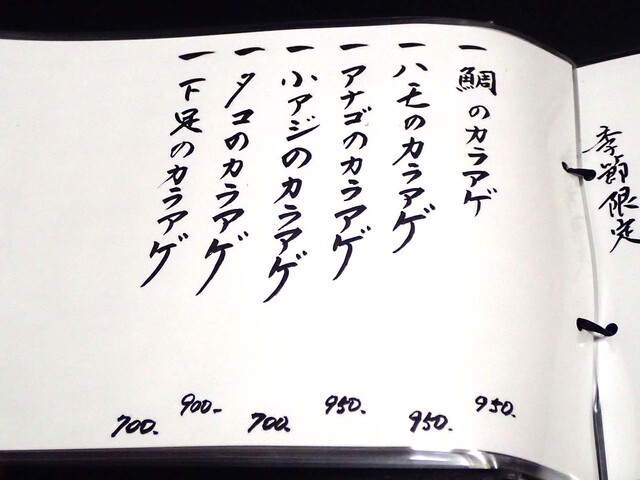 季節限定
一 鯛のカラアゲ 950.
一 ハモのカラアゲ 950.
一 アナゴのカラアゲ 950.
一 小アジのカラアゲ 700.
一 タコのカラアゲ 900-
一 下足のカラアゲ 700.